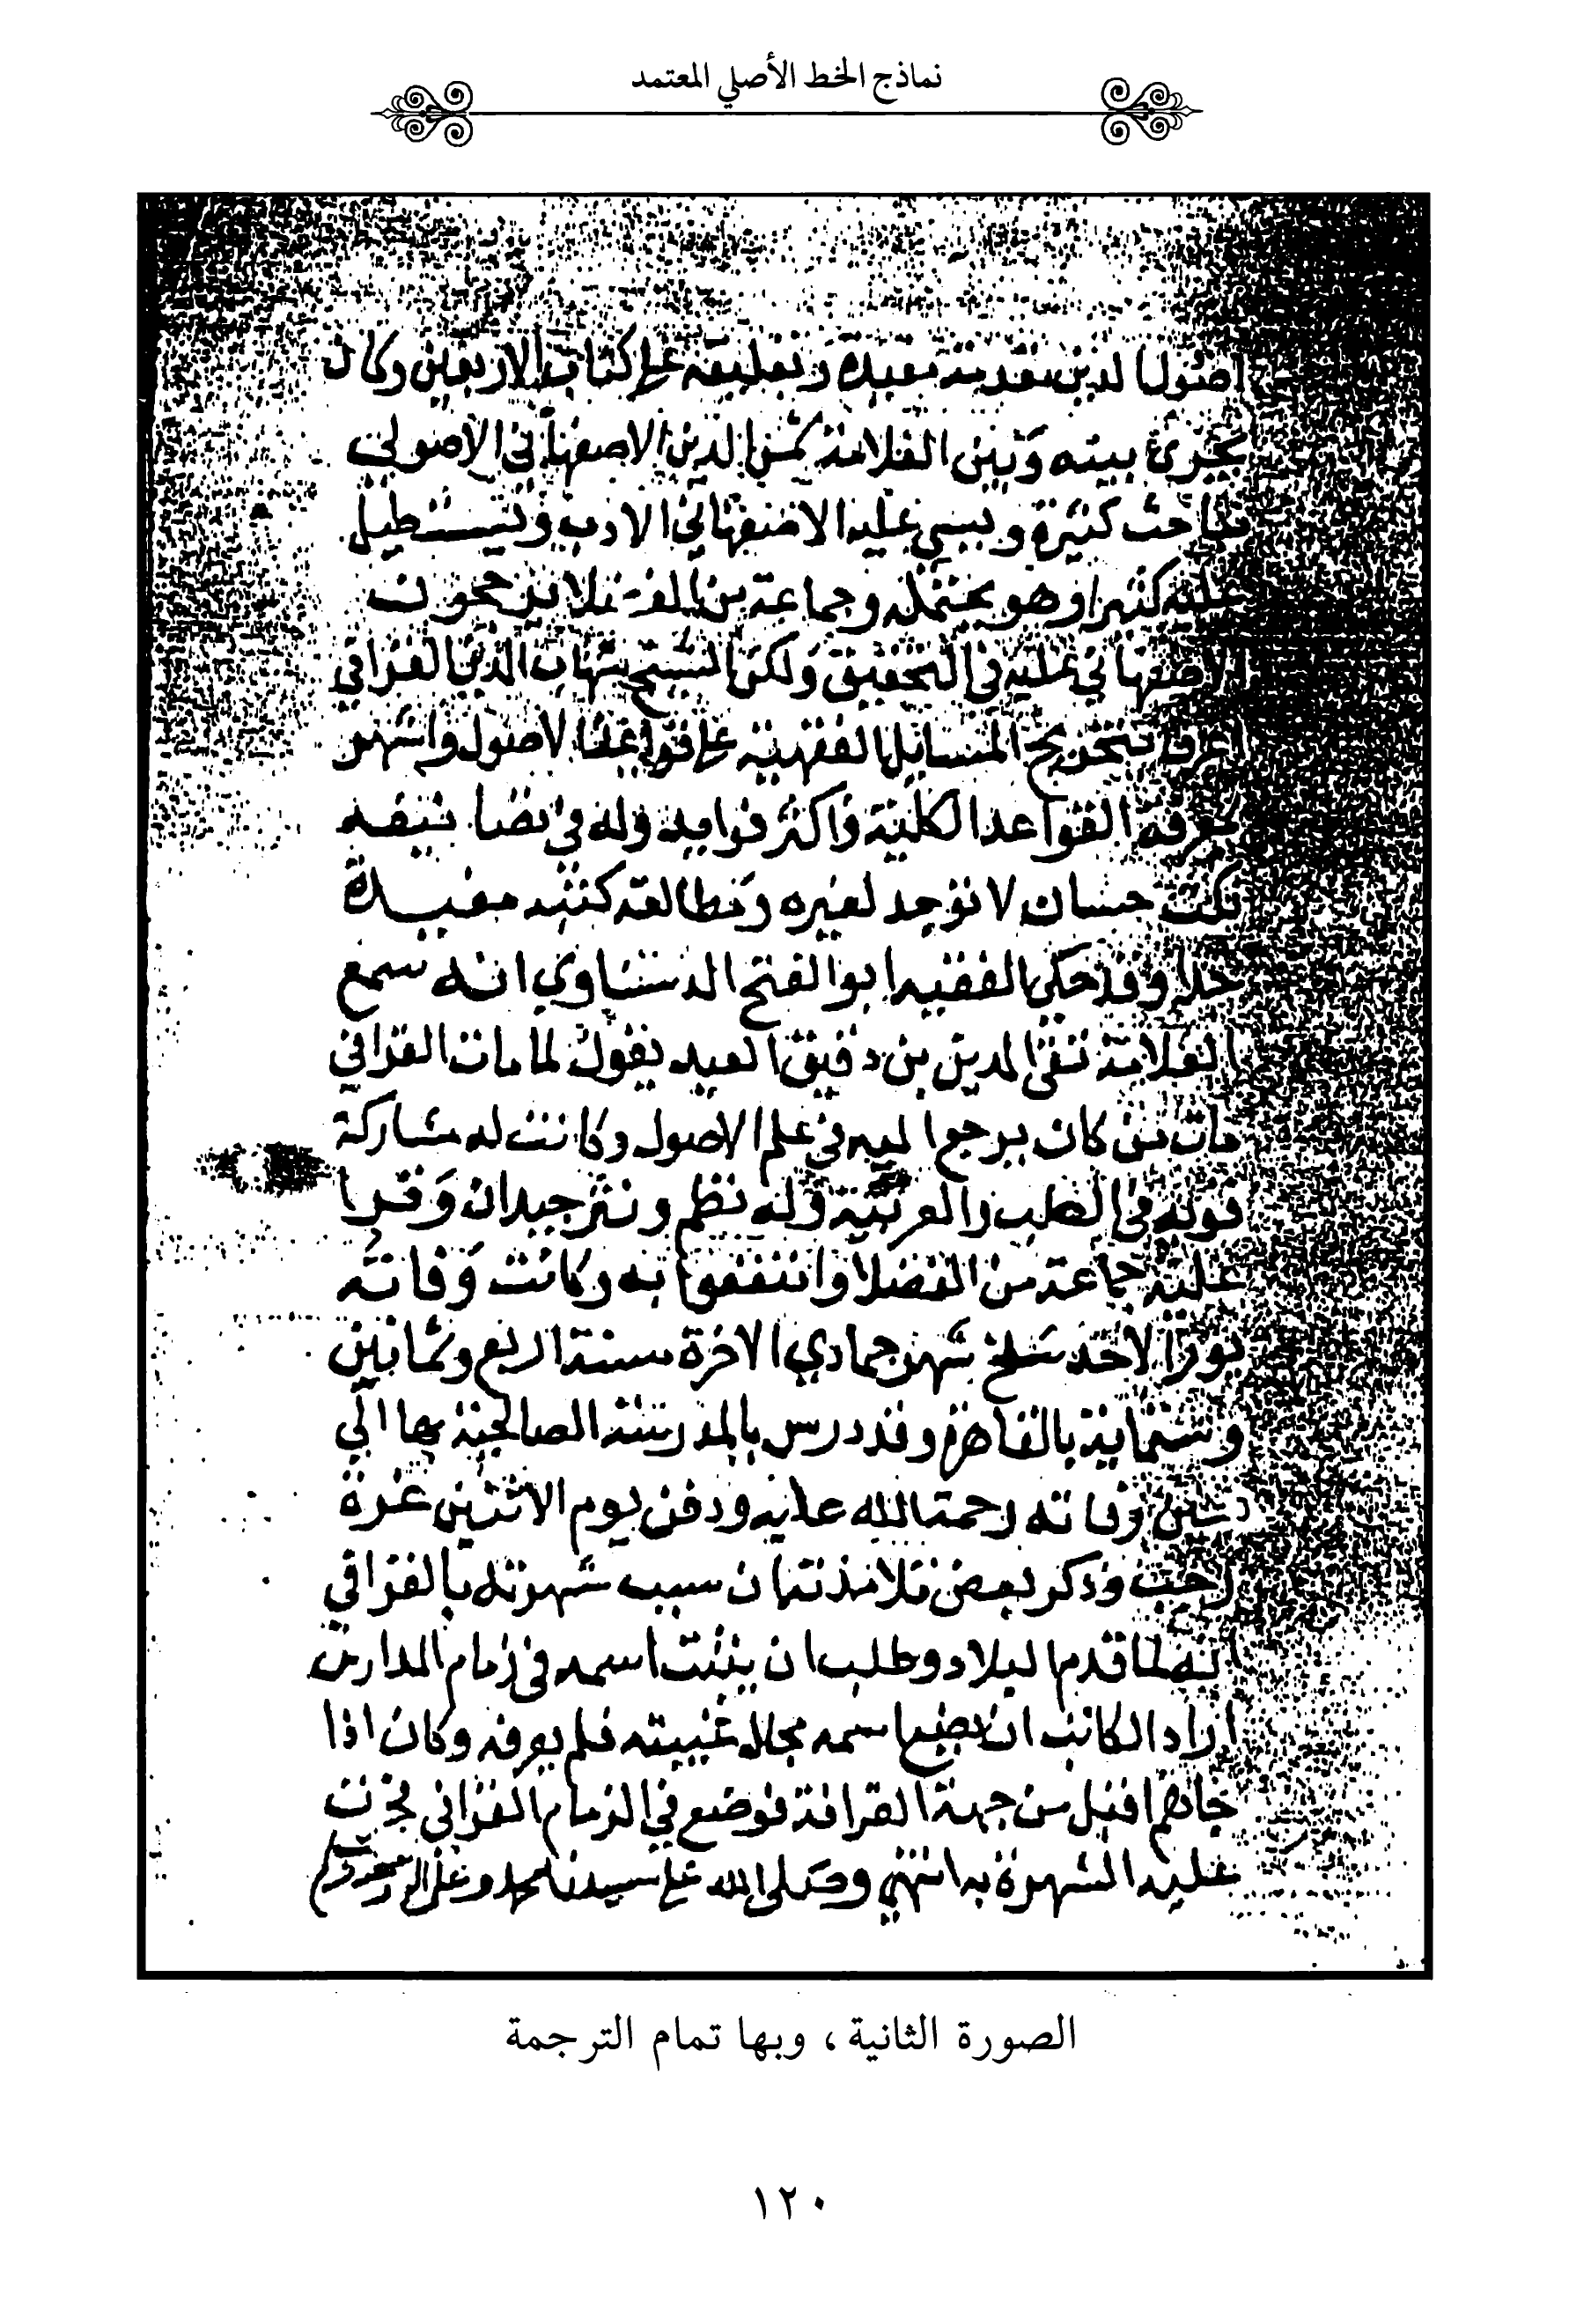 نماذج الخط الأصلي المعتمد
اصول الدين مقدمة مفيدة وتعليقة على كتاب الاربعين وكان
يجرى بينه وبين العلامة شمس الدين الاصفهاني في الاصولين
مباحث كثيرة ويسي عليه الاصفهاني في الادب ويستطيل
عليه كثيرا وهو يحتمله وجماعة من الفضلا يرجحون
الاصفهاني عليه في التحقيق ولكن الشيخ شهاب الدين القرافي
اعرف بتخريج المسايل الفقهية على قواعد الاصول واشهر
بمعرفة القواعد الكلية واكثر فوايد وله في تصانيفه
نكت حسان لا توجد لغيره ومطالعة كتبه مفيدة
جدا وقد حكى الفقيه ابو الفتح الدشناوي انه سمع
العلامة تقي الدين بن دقيق العيد يقول لما مات القرافي
مات من كان يرجع اليه في علم الاصول وكانت له مشاركة
قوية في الطب والعربية وله نظم ونثر جيدان وقرا
عليه جماعة من الفضلا وانتفعوا به وكانت وفاته
يوم الاحد سلخ شهر جمادي الاخرة سنة اربع وثمانين
وستماية بالقاهرة وقد درس بالمدرسة الصالحية بها الي
حين وفاته رحمة الله عليه ودفن يوم الاثنين غرة
رجب وذكر بعض تلامذته ان سبب شهرته بالقرافي
انه لما قدم البلاد وطلب ان يثبت اسمه في زمام المدارس
اراد الكاتب ان يضع اسمه بحال غيبته فلم يعرفه وكان اذا
جاهم اقبل من جهة القرافة فوضع في الزمام القرافي فجرت
عليه الشهرة به انتهي وصلى الله على سيدنا محمد وعلى اله وصحبه وسلم
الصورة الثانية، وبها تمام الترجمة
١٢٠